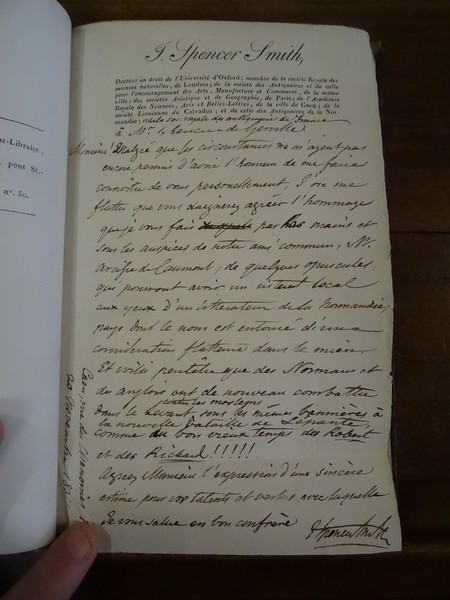 ar-Libraire,
pont St-
n°. 50.
J. Spencer Smith,
Docteur en droit de l'Université d'Oxford; membre de la société Royale des
sciences naturelles, de Londres; de la société des Antiquaires et de celle
pour l'encouragement des Arts, Manufacture et Commerce, de la même
ville; des sociétés Asiatique et de Géographie, de Paris; de l'Académie
Royale des Sciences, Arts et Belles-Lettres, de la ville de Caen; de la
société Linnéenne du Calvados; et de celle des Antiquaires de la Nor-
mandie; et de la soc. royale des antiquaires de France
à Mr. de Gerville
Monsieur, Malgré que les circonstances ne m'ayent pas
encore permis d'avoir l'honneur de me faire
connoître de vous personnellement, J'ose me
flatter que vous daignerez agréer l'hommage
que je vous fais par les mains et
sous les auspices de notre ami commun, M.
Arcisse de Caumont, de quelques opuscules,
qui pourront avoir un intérêt local
aux yeux d'un littérateur de la Normandie,
pays dont le nom est entouré d'une
considération flatteuse dans le mien.
Et voilà peutêtre que des Normans et
des anglois ont de nouveau combattu
dans le Levant sous les mêmes bannières à
contre les moslems
la nouvelle bataille de Lépante
comme au bon vieux temps des Robert
et des Richard !!!!!
Agréez Monsieur l'expression d'une sincère
estime pour vos talents et vertus, avec laquelle
Je vous salue en bon confrère
J Spencer Smith
Caen, rue des
20 Novembre